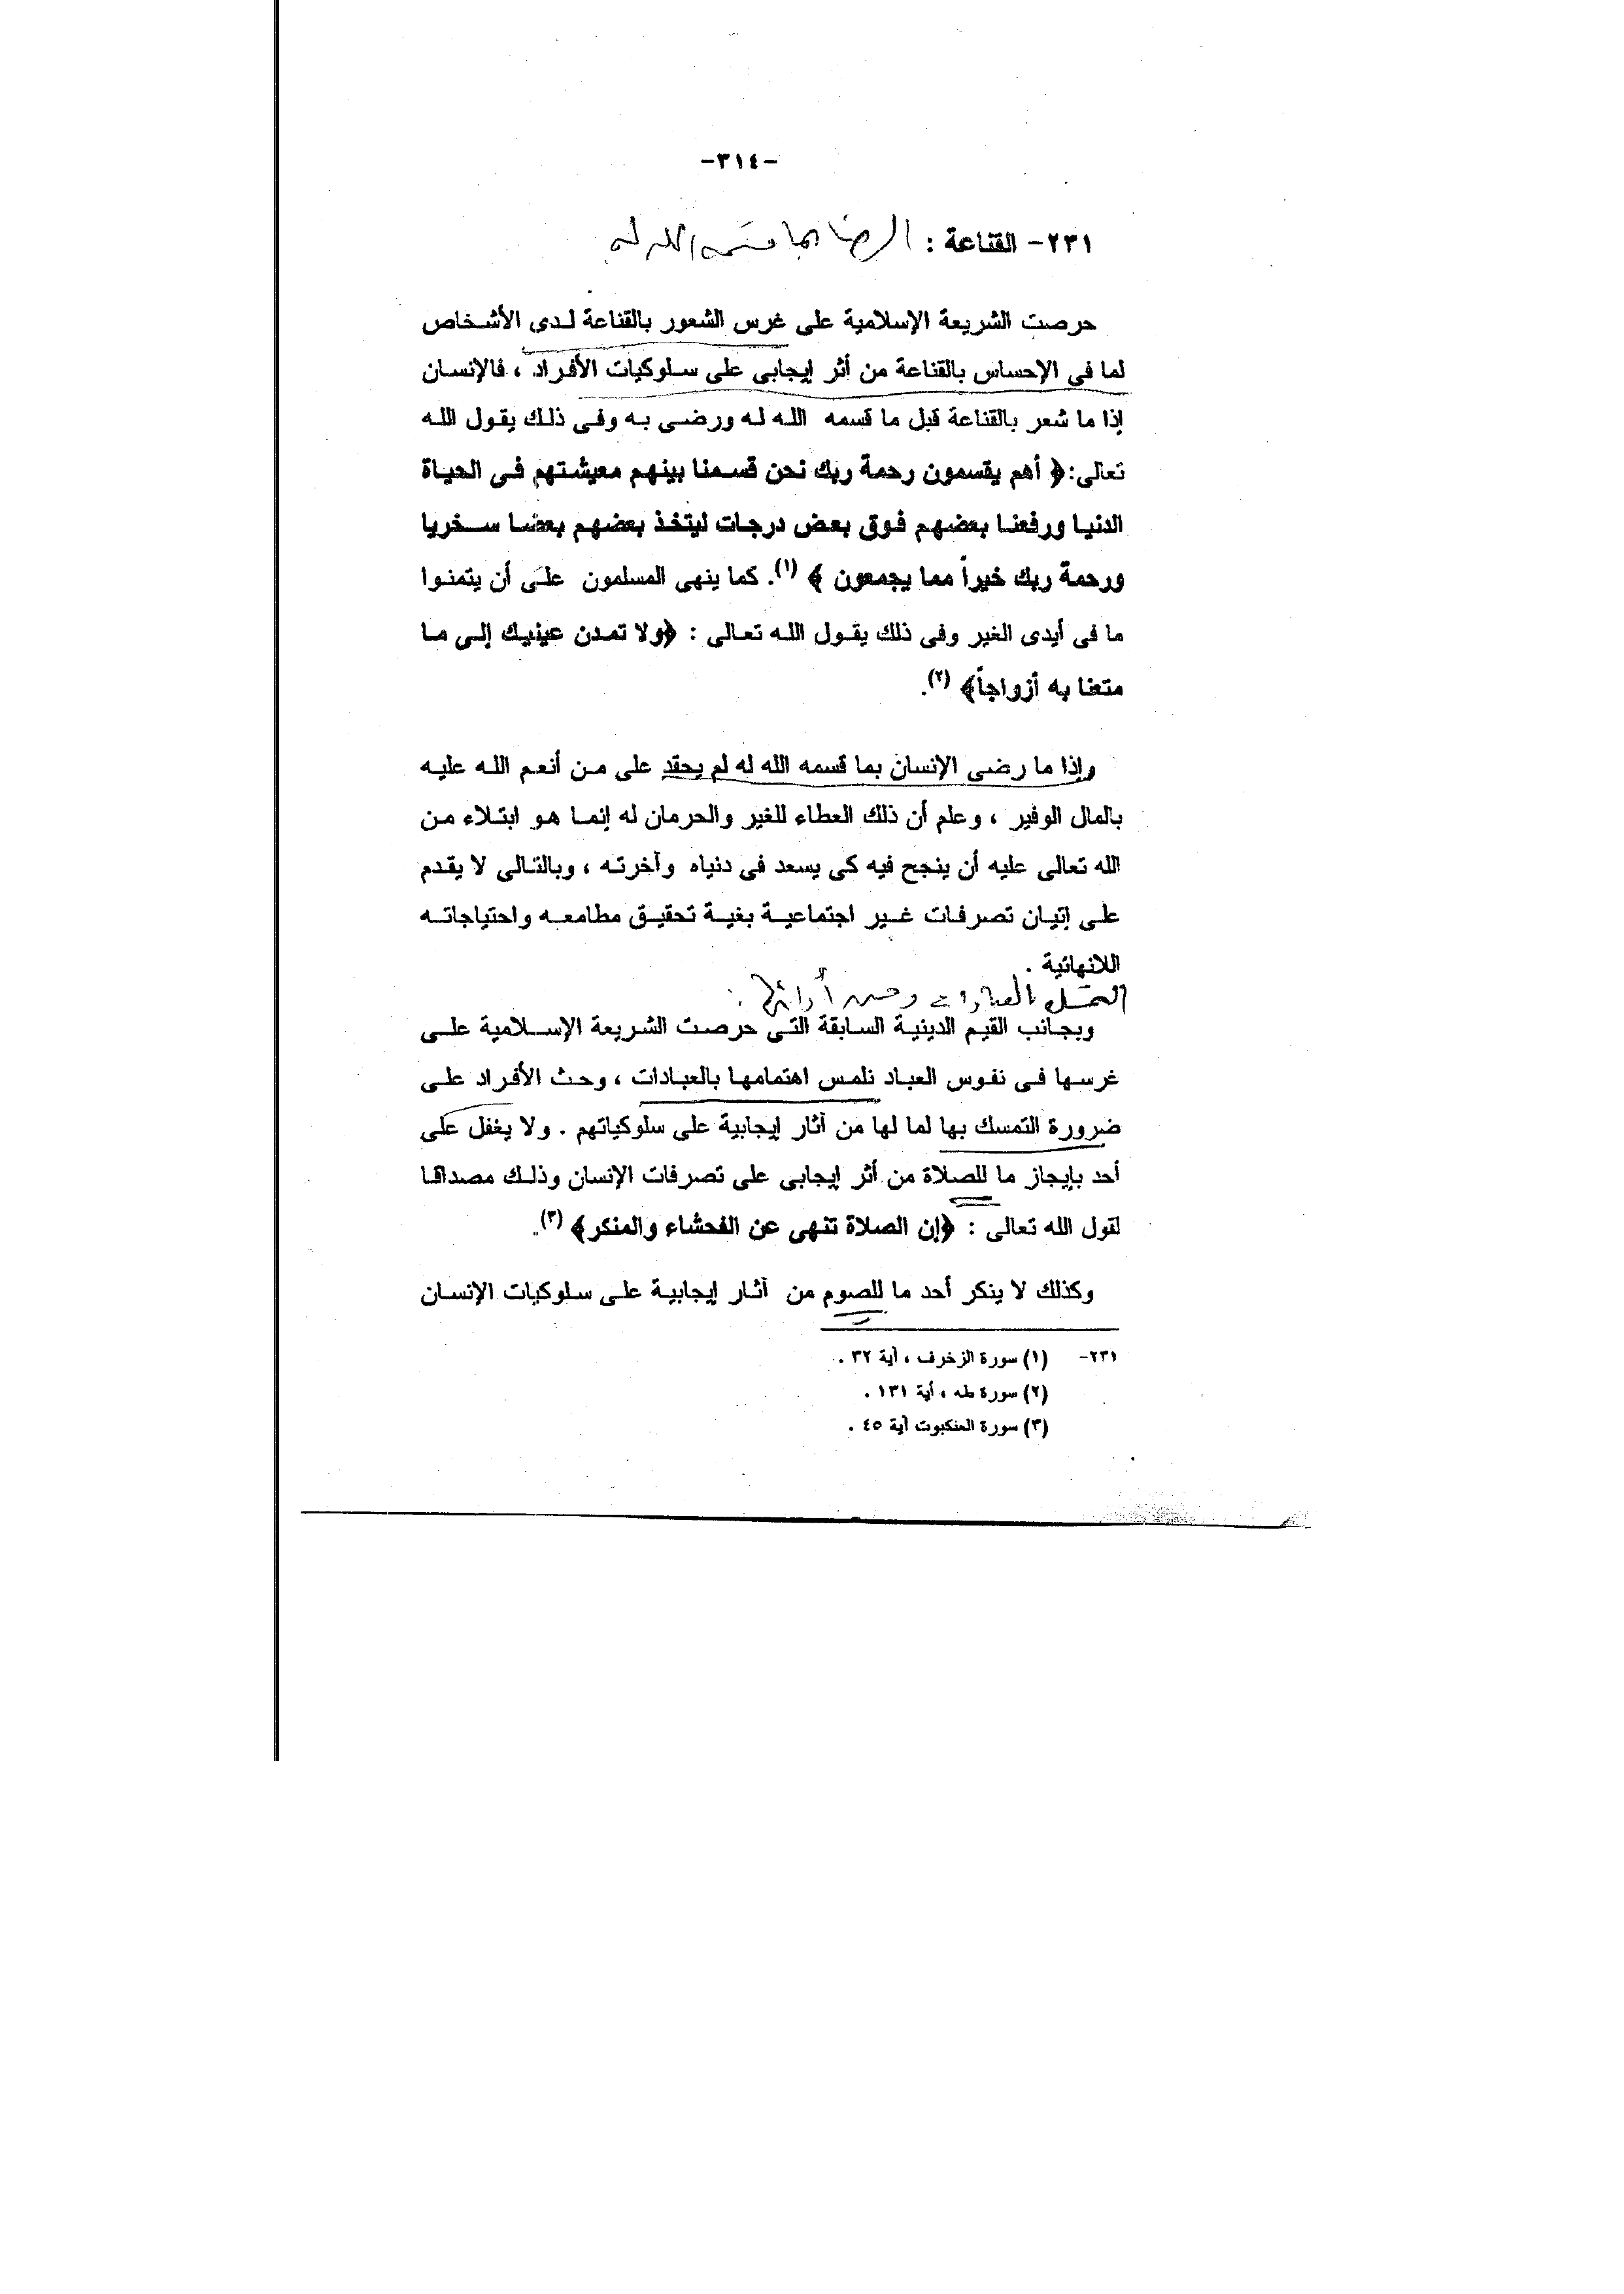 -٣١٤-
٢٣١- القناعة : الرضا بما قسمه الله له
حرصت الشريعة الإسلامية على غرس الشعور بالقناعة لدى الأشخاص
لما فى الإحساس بالقناعة من أثر إيجابى على سلوكيات الأفراد ، فالإنسان
إذا ما شعر بالقناعة قبل ما قسمه الله له ورضى به وفى ذلك يقول الله
تعالى:﴿ أهم يقسمون رحمة ربك نحن قسمنا بينهم معيشتهم فى الحياة
الدنيا ورفعنا بعضهم فوق بعض درجات ليتخذ بعضهم بعضا سخريا
ورحمة ربك خيراً مما يجمعون ﴾ (١). كما ينهى المسلمون على أن يتمنوا
ما فى أيدى الغير وفى ذلك يقول الله تعالى : ﴿ولا تمدن عينيك إلى ما
متعنا به أزواجاً﴾ (٢).
وإذا ما رضى الإنسان بما قسمه الله له لم يحقد على من أنعم الله عليه
بالمال الوفير ، وعلم أن ذلك العطاء للغير والحرمان له إنما هو ابتلاء من
الله تعالى عليه أن ينجح فيه كى يسعد فى دنياه وآخرته ، وبالتالى لا يقدم
على إتيان تصرفات غير اجتماعية بغية تحقيق مطامعه واحتياجاته
اللانهائية .
بالعبادات وحسن أدائها :
وبجانب القيم الدينية السابقة التى حرصت الشريعة الإسلامية على
غرسها فى نفوس العباد نلمس اهتمامها بالعبادات ، وحث الأفراد على
ضرورة التمسك بها لما لها من آثار إيجابية على سلوكياتهم . ولا يغفل على
أحد بإيجاز ما للصلاة من أثر إيجابى على تصرفات الإنسان وذلك مصداقا
لقول الله تعالى : ﴿إن الصلاة تنهى عن الفحشاء والمنكر﴾ (٣).
وكذلك لا ينكر أحد ما للصوم من آثار إيجابية على سلوكيات الإنسان
٢٣١- (١) سورة الزخرف ، آية ٣٢ .
(٢) سورة طه ، أية ١٣١ .
(٣) سورة العنكبوت آية ٤٥ .